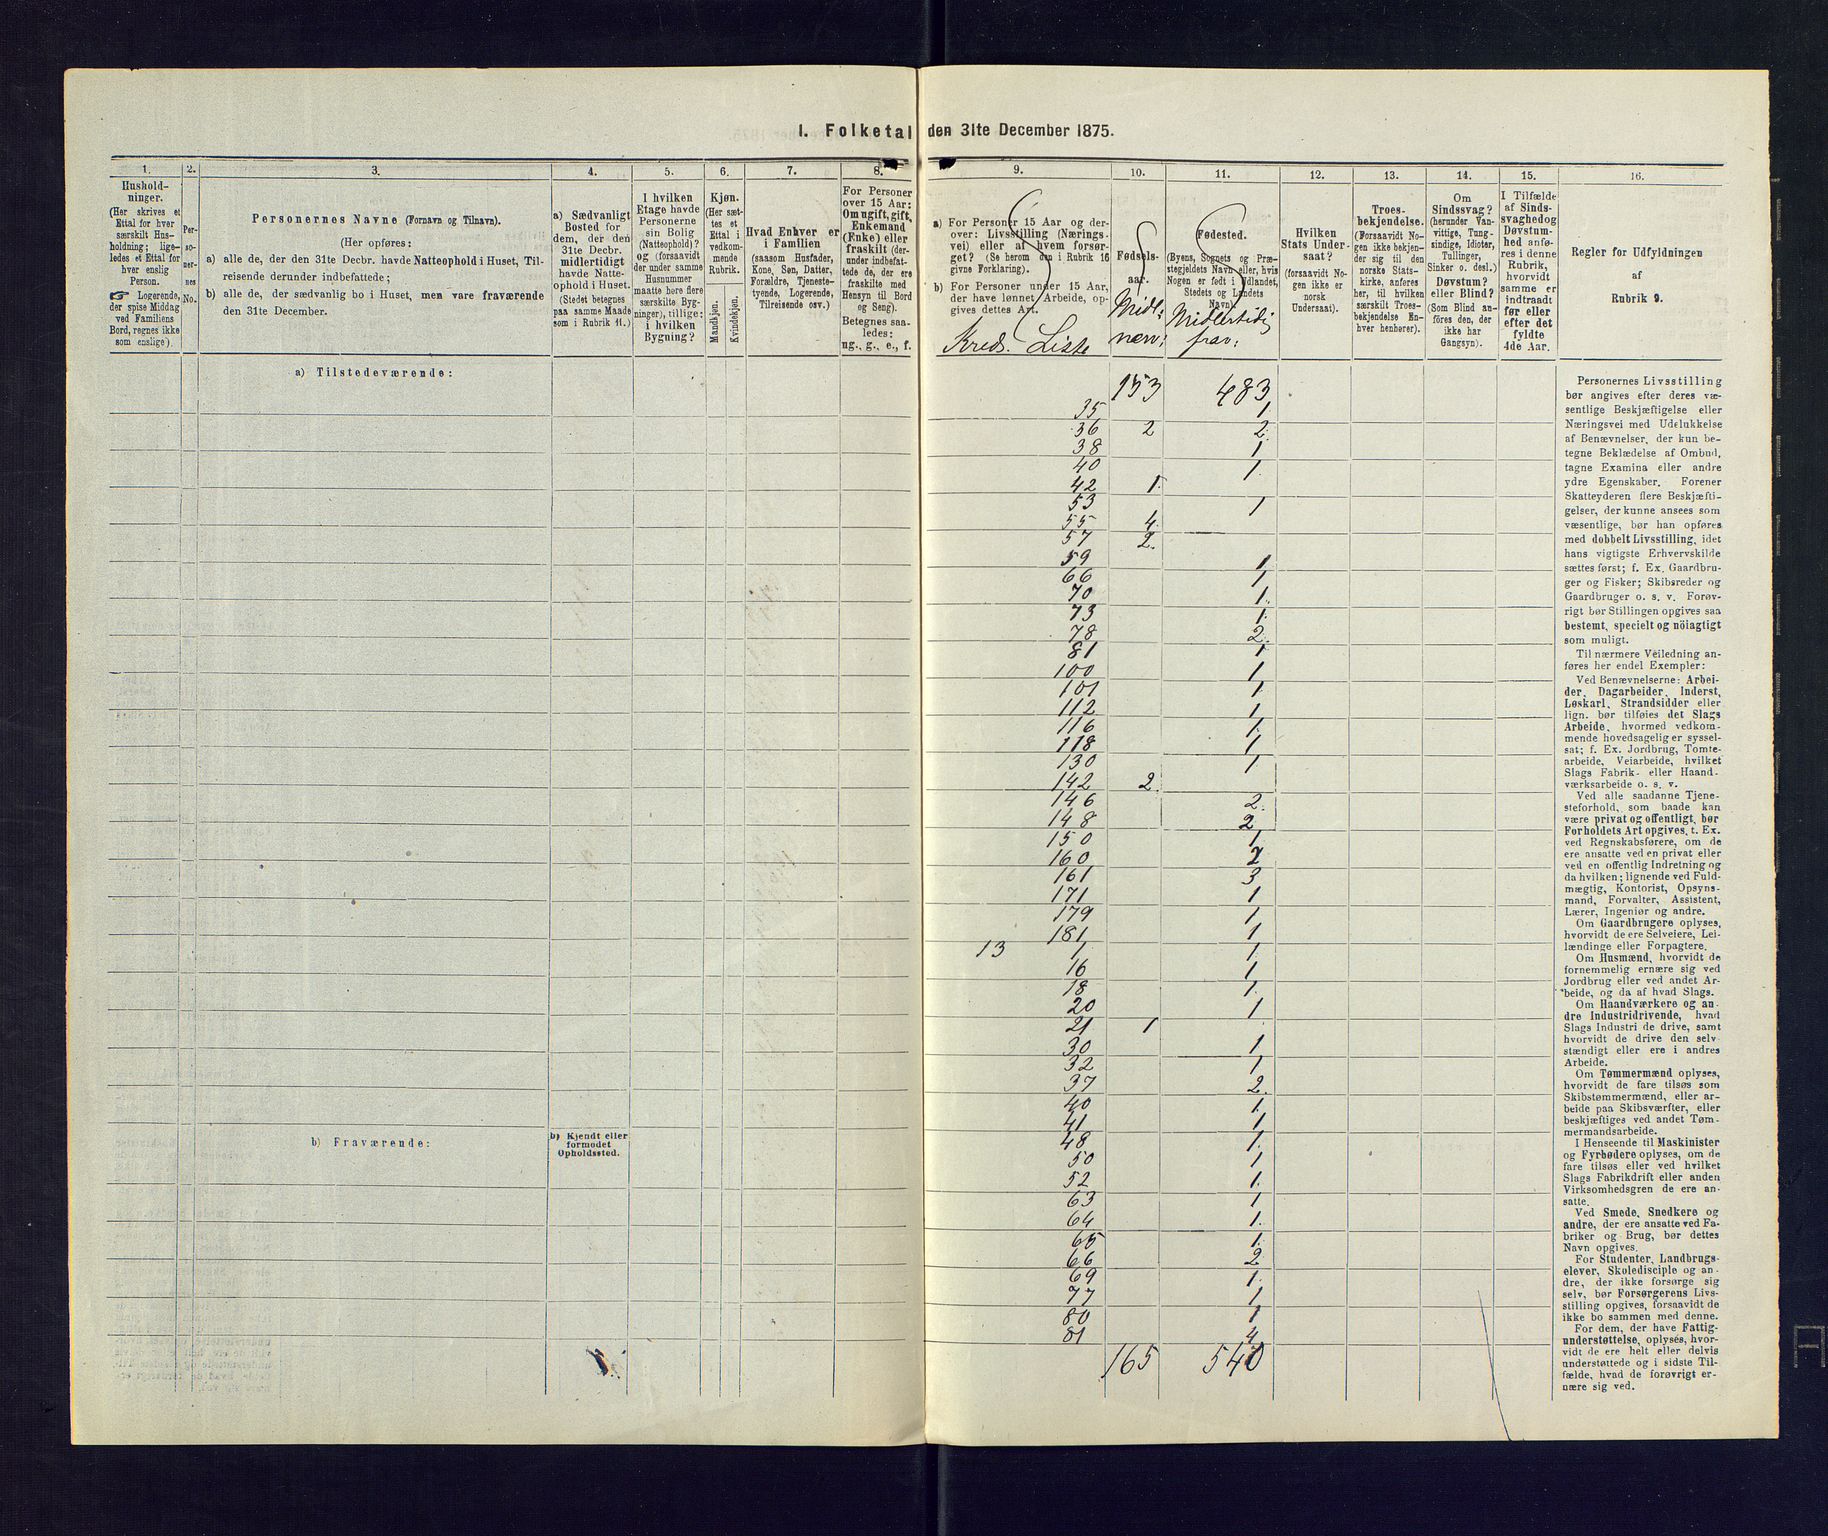 I. Folketal den 31te December 1875.
1.
Hushold-
ninger.
(Her skrives et
Ettal for hver
særskilt Hus-
holdning; lige-
ledes et Ettal for
hver enslig
Person.
☞ Logerende,
der spise Middag
ved Familiens
Bord, regnes ikke
som enslige).
2.
Per-
so-
ner-
nes
No.
3.
Personernes Navne (Fornavn og Tilnavn).
(Her opføres:
a) alle de, der den 31te Decbr. havde Natteophold i Huset, Til-
reisende derunder indbefattede;
b) alle de, der sædvanlig bo i Huset, men vare fraværende
den 31te December.
4.
a) Sædvanligt
Bosted for
dem, der den
31te Decbr.
midlertidigt
havde Natte-
ophold i Huset.
(Stedet betegnes
paa samme Maade
som i Rubrik 11.)
5.
I hvilken
Etage havde
Personerne
sin Bolig
(Natteophold)?
og (forsaavidt
der under samme
Husnummer
maatte høre flere
særskilte Byg-
ninger), tillige:
i hvilken
Bygning?
6.
Kjøn.
(Her sæt-
tes et
Ettal i
vedkom-
mende
Rubrik.
Mandkjøn.
Kvindekjøn.
7.
Hvad Enhver er
i Familien
(saasom Husfader,
Kone, Søn, Datter,
Forældre, Tjeneste-
tyende, Logerende,
Tilreisende osv.)
8.
For Personer
over 15 Aar:
Om ugift, gift,
Enkemand
(Enke) eller
fraskilt (der-
under indbefat-
tede de, der ere
fraskilte med
Hensyn til Bord
og Seng).
Betegnes saa-
ledes:
ug., g., e., f.
9.
a) For Personer 15 Aar og der-
over: Livsstilling (Nærings-
vei) eller af hvem forsør-
get? (Se herom den i Rubrik 16
givne Forklaring).
b) For Personer under 15 Aar,
der have lønnet Arbeide, op-
gives dettes Art.
Kreds. Liste
10.
Fødsels-
aar.
Midl:
nær:
11.
Fødested.
(Byens, Sognets og Præ-
stegjeldets Navn eller, hvis
Nogen er født i Udlandet,
Stedets og Landets
Navn).
Midlertidig
frav:
12.
Hvilken
Stats Under-
saat?
(forsaavidt No-
gen ikke er
norsk
Undersaat).
13.
Troes-
bekjendelse.
(Forsaavidt No-
gen ikke bekjen-
der sig til den
norske Stats-
kirke, anføres
her, til hvilken
særskilt Troes-
bekjendelse En-
hver henhører).
14.
Om
Sindssvag?
(herunder Van-
vittige, Tung-
sindige, Idioter,
Tullinger,
Sinker o. desl.)
Døvstum?
eller Blind?
(Som Blind an-
føres den, der
ikke har
Gangsyn).
15.
I Tilfælde
af Sinds-
svaghed og
Døvstum-
hed anfø-
res i denne
Rubrik,
hvorvidt
samme er
indtraadt
før eller
efter det
fyldte
4de Aar.
16.
Regler for Udfyldningen
af
Rubrik 9.
a) Tilstedeværende:
b) Fraværende:
b) Kjendt eller
formodet
Opholdssted.
153 483
35 1
36 2 2
38 1
40 1
42 1
53 1
55 4
57 2
59 1
66 1
70 1
73 1
78 2
81 1
100 1
101 1
112 1
116 1
118 1
130 1
142 2
146 2
148 2
150 1
160 2
161 3
171 1
179 1
181 1
13 1 1
16 1
18 1
20 1
21 1
30 1
32 1
37 2
40 1
41 1
48 1
50 1
52 1
63 1
64 1
65 1
66 2
69 1
77 1
80 1
81 4
165 540
Personernes Livsstilling
bør angives efter deres væ-
sentlige Beskjæftigelse eller
Næringsvei med Udelukkelse
af Benævnelser, der kun be-
tegne Beklædelse af Ombud,
tagne Examina eller andre
ydre Egenskaber. Forener
Skatteyderen flere Beskjæfti-
gelser, der kunne ansees som
væsentlige, bør han opføres
med dobbelt Livsstilling, idet
hans vigtigste Erhvervskilde
sættes først; f. Ex. Gaardbru-
ger og Fisker; Skibsreder og
Gaardbruger o. s. v. Forøv-
rigt bør Stillingen opgives saa
bestemt, specielt og nöiagtigt
som muligt.
Til nærmere Veiledning an-
føres her endel Exempler:
Ved Benævnelserne: Arbei-
der, Dagarbeider, Inderst,
Løskarl, Strandsidder eller
lign. bør tilføies det Slags
Arbeide, hvormed vedkom-
mende hovedsagelig er syssel-
sat; f. Ex. Jordbrug, Tomte-
arbeide, Veiarbeide, hvilket
Slags Fabrik- eller Haand-
værksarbeide o. s. v.
Ved alle saadanne Tjene-
steforhold, som baade kan
være privat og offentligt, bør
Forholdets Art opgives, t. Ex.
ved Regnskabsførere, om de
ere ansatte ved en privat eller
ved en offentlig Indretning og
da hvilken; lignende ved Fuld-
mægtig, Kontorist, Opsyns-
mand, Forvalter, Assistent,
Lærer, Ingeniør og andre.
Om Gaardbrugere oplyses,
hvorvidt de ere Selveiere, Lei-
lændinge eller Forpagtere.
Om Husmænd, hvorvidt de
fornemmelig ernære sig ved
Jordbrug eller ved andet Ar-
beide, og da af hvad Slags.
Om Haandværkere og an-
dre Industridrivende, hvad
Slags Industri de drive, samt
hvorvidt de drive den selv-
stændigt eller ere i andres
Arbeide.
Om Tømmermænd oplyses,
hvorvidt de fare tilsøs som
Skibstømmermænd, eller ar-
beide paa Skibsværfter, eller
beskjæftiges ved andet Tøm-
mermandsarbeide.
I Henseende til Maskinister
og Fyrbødere oplyses, om de
fare tilsøs eller ved hvilket
Slags Fabrikdrift eller anden
Virksomhedsgren de ere an-
satte.
Ved Smede, Snedkere og
andre, der ere ansatte ved Fa-
briker og Brug, bør dettes
Navn opgives.
For Studenter, Landbrugs-
elever, Skoledisciple og an-
dre, der ikke forsørge sig
selv, bør Forsørgerens Livs-
stilling opgives, forsaavidt de
ikke bo sammen med denne.
For dem, der have Fattig-
understøttelse, oplyses, hvor-
vidt de ere helt eller delvis
understøttede og i sidste Til-
fælde, hvad de forøvrigt er-
nære sig ved.